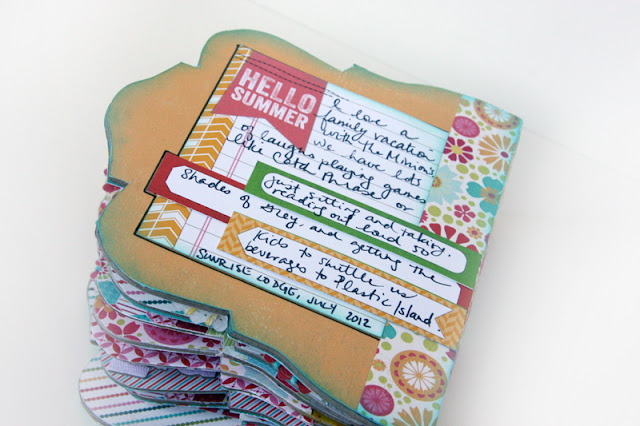 HELLO
SUMMER
I love a
family vacation
with the Minion's
we have lots
of laughs playing games
like Catch Phrase or
just sitting and talking,
reading out loud 50
Shades of Grey, and getting the
kids to shuttle us
beverages to Plastic Island.
SUNRISE LODGE, JULY 2012